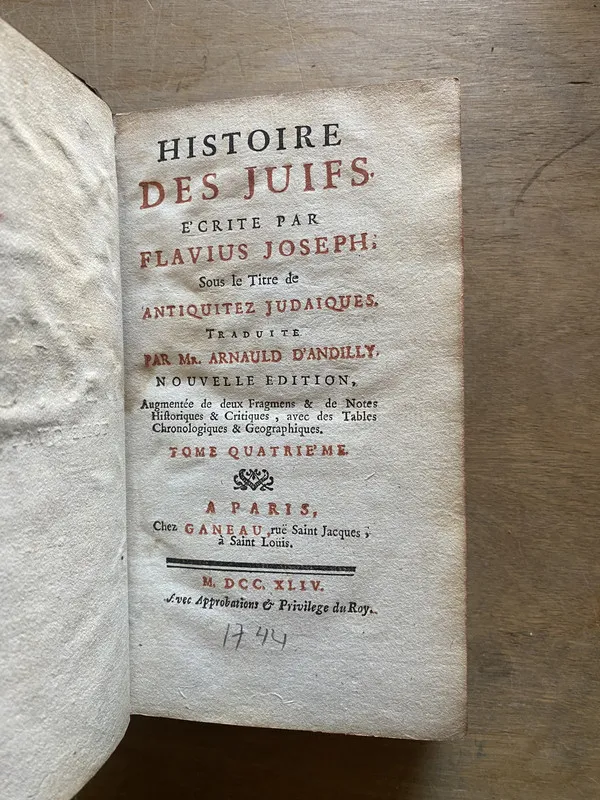 HISTOIRE
DES JUIFS.
E'CRITE PAR
FLAVIUS JOSEPH;
Sous le Titre de
ANTIQUITEZ JUDAIQUES.
TRADUITE
PAR MR. ARNAULD D'ANDILLY,
NOUVELLE EDITION,
Augmentée de deux Fragmens & de Notes
Historiques & Critiques, avec des Tables
Chronologiques & Geographiques.
TOME QUATRIE'ME.
A PARIS,
Chez GANEAU, ruë Saint Jacques,
à Saint Louis.
M. DCC. XLIV.
Avec Approbations & Privilege du Roy.
1744